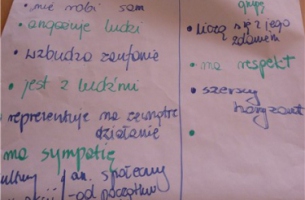 nie robi sam
• angażuje ludzi
• wzbudza zaufanie
• jest z ludźmi
reprezentuje na zewnątrz
działanie
ma sympatię
an. społeczny
-od początku
grupę
• liczą się z jego
zdaniem
• ma respekt
• szerszy
horyzont